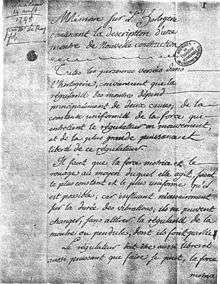 Mémoire sur l'Horlogerie
contenant la description d'une
montre de Nouvelle construction
Toutes les personnes versées dans
l'horlogerie, conviennent que la
régularité des montres dépend
principalement de deux causes, de la
constante uniformité de la force qui
entretient le régulateur en mouvement
et de la plus grande puissance et
liberté de ce régulateur.
Il faut que la force motrice et le
rouage au moyen duquel elle agit, soient
le plus constant et le plus uniforme qu'il
est possible, car influant
sur la durée des vibrations, ils ne peuvent
changer, sans altérer la régularité de la
montre ou pendule, dont ils font partie
Le régulateur doit être aussi libre et
aussi puissant que faire se peut, la force